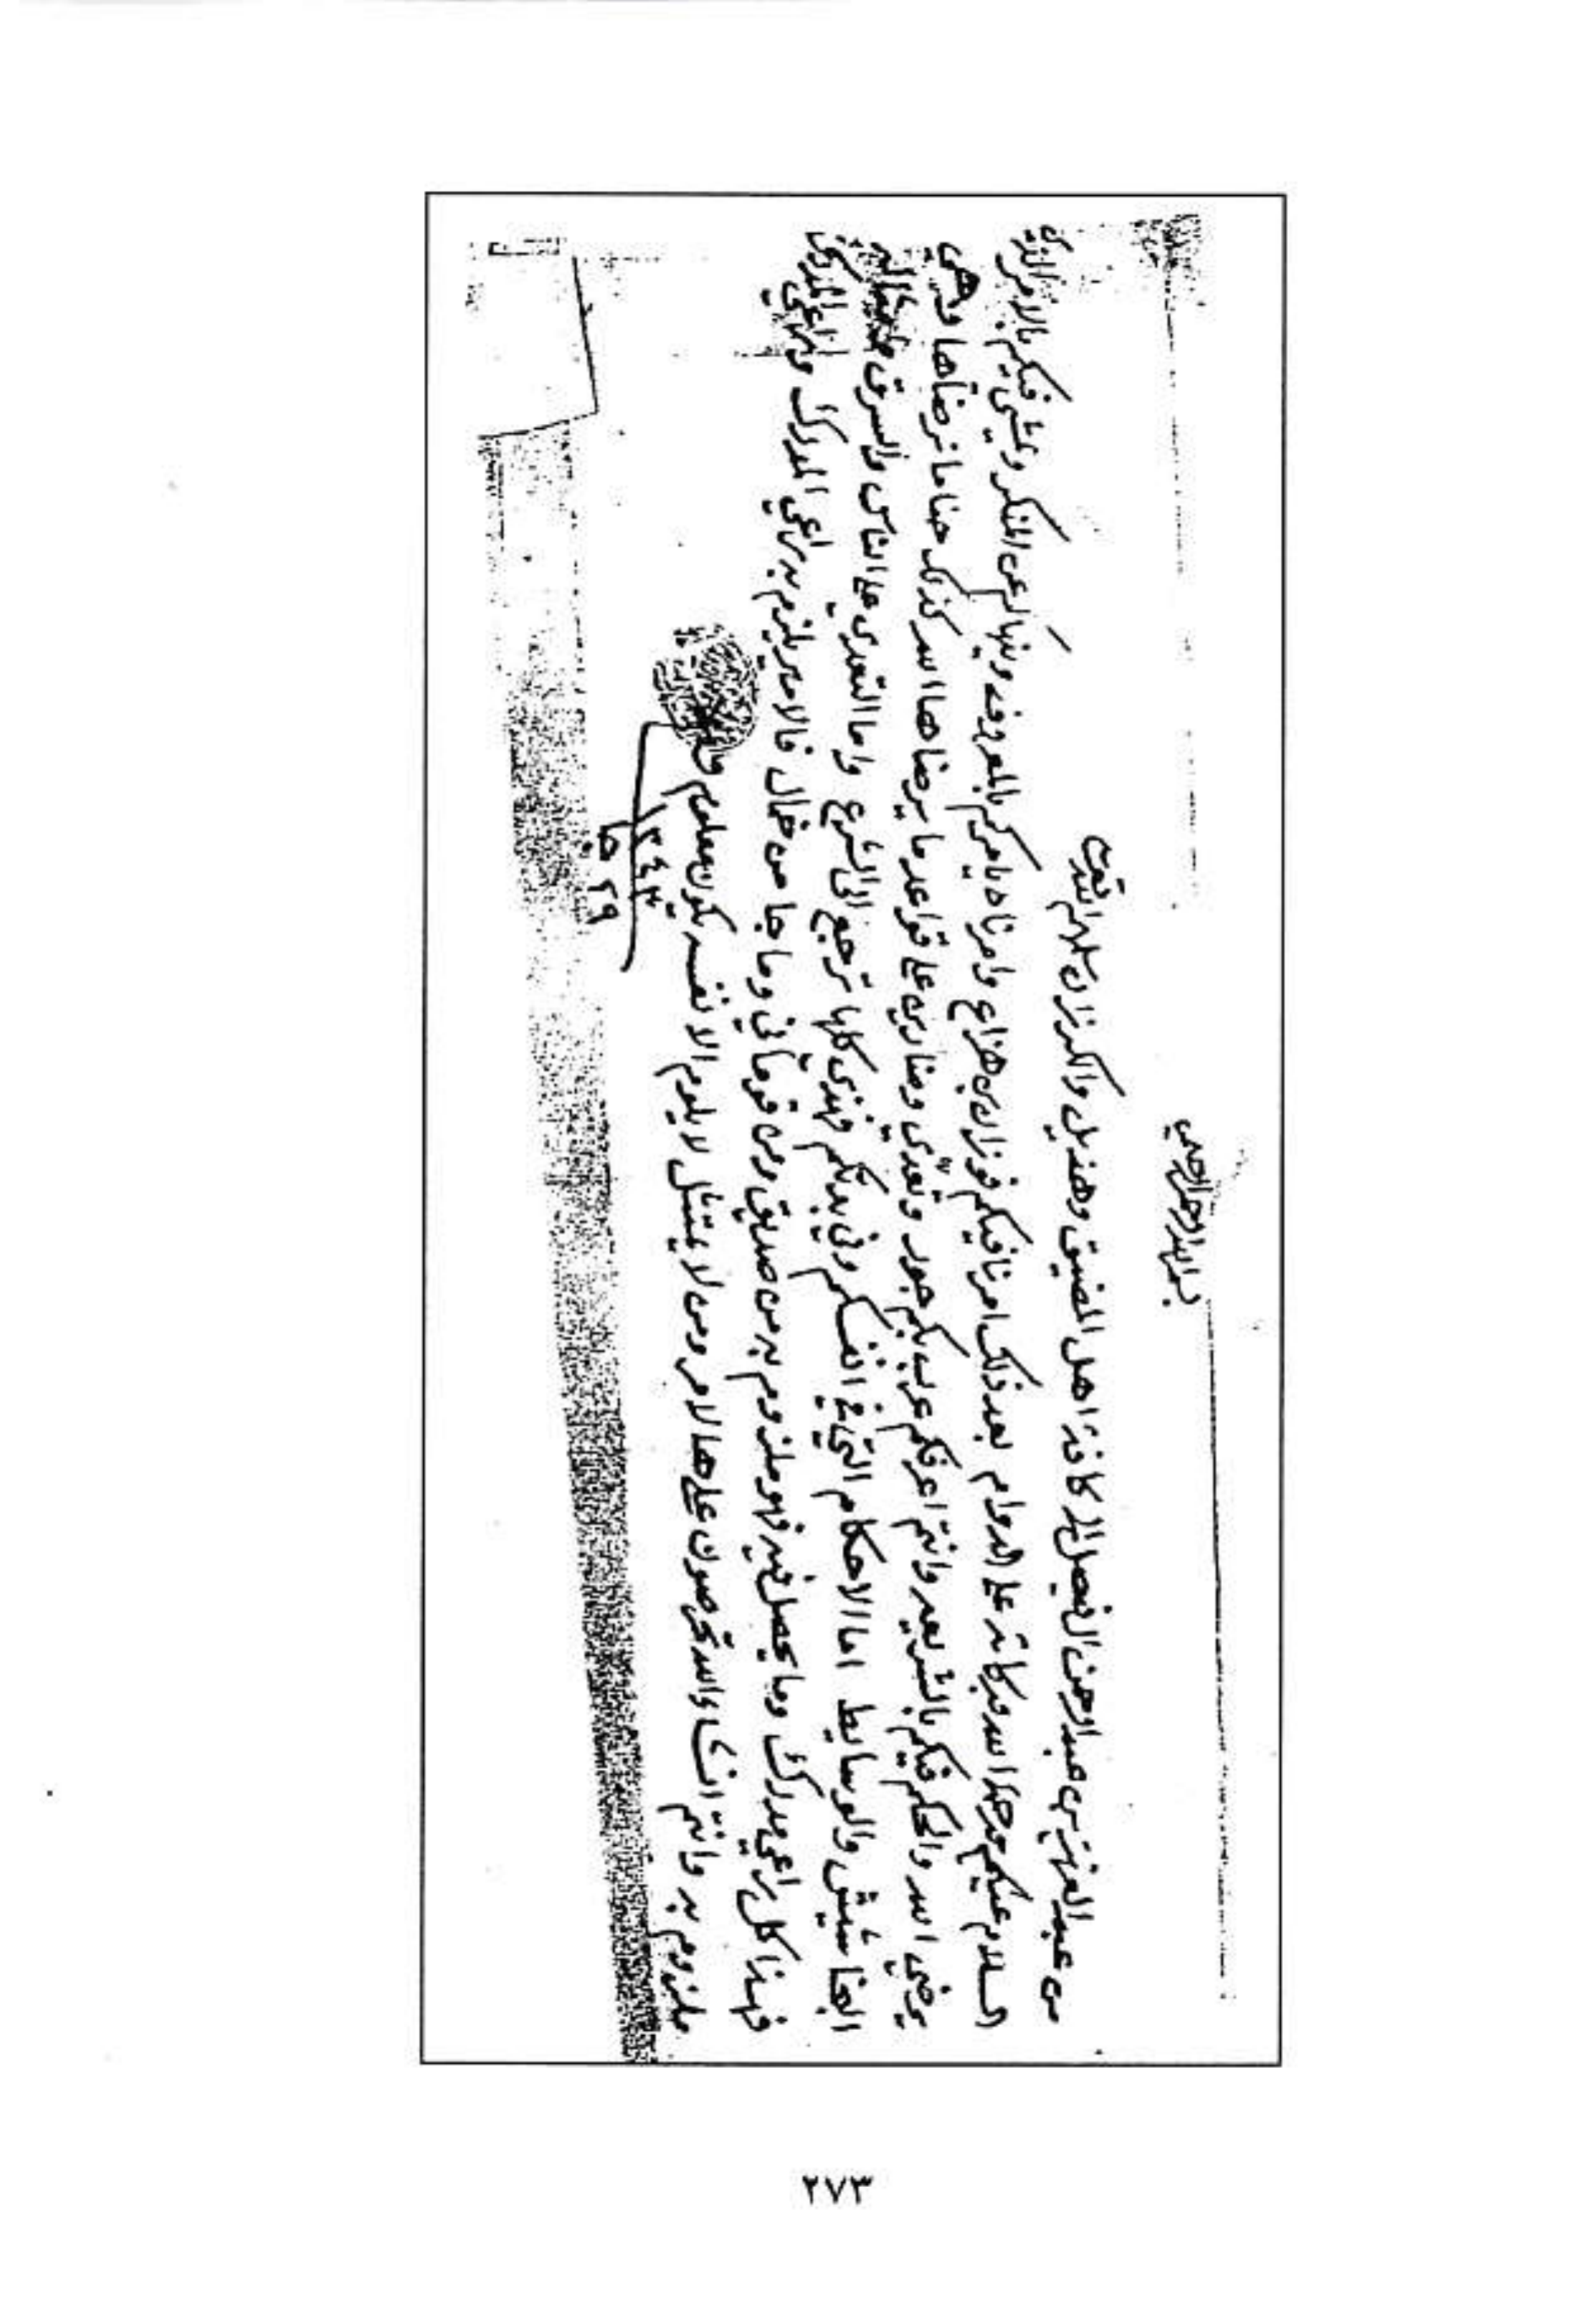 بسم الله الرحمن الرحيم
من عبد العزيز بن عبد الرحمن الفيصل الى كافة اهل المضيق وهذيل سلمهم الله تعالى
السلام عليكم ورحمة الله وبركاته على الدوام بعد ذلك امرنا فيكم فوزان بن هزاع وامرناه يامركم بالمعروف وينهاكم عن المنكر ويمشي فيكم بالامر الذي
يرضي الله والحكم فيكم بالشريعة وانتم اعرفكم عرب بكم جور وتعدي على قواعد ما يرضاها الله كذلك حنا ما نرضاها وهي
والوسايط اما الاحكام التي في انفسكم وفي بدنكم فهذي كلها ترجع الى الشرع واما التعدي على الناس والسرق
فهذا كل راعي مدرك وما يحصل فيه فهو ملزوم به من صديق ومن قوماني وما جا من خمال فالامير يلزم به راعي المدرك وراعي المدرك
ملزوم به وانتم انشاء الله تحرصون على هالامر ومن لا يمتثل لا يلوم الا نفسه يكون معلوم
١٣٤٣
٢٩
٢٧٣